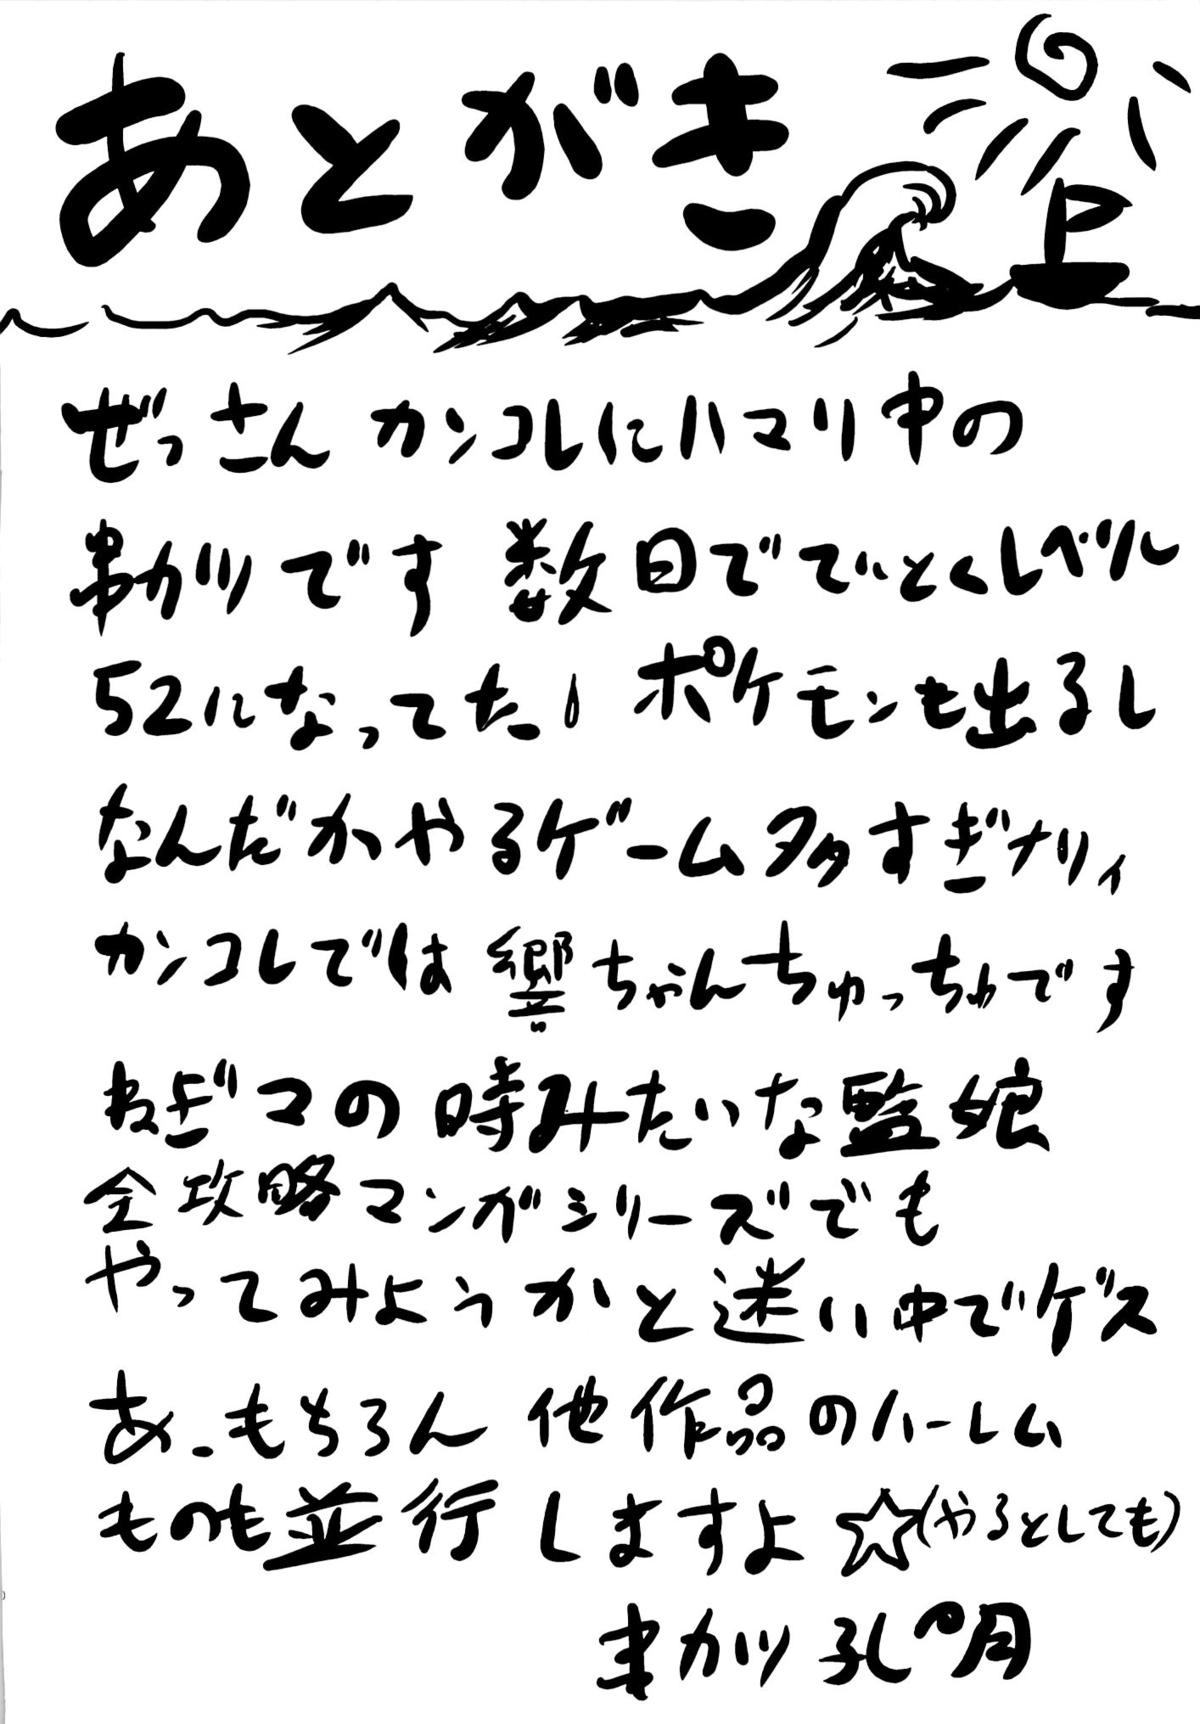 あとがき
ぜっさん カンコレにハマり中の
串カツです 数日でていとくレベル
52になってた! ポケモンも出るし
なんだかやるゲーム多すぎナリィ
カンコレでは響ちゃんちゅっちゅです
ねぎマの時みたいな監娘
全攻略マンガシリーズでも
やってみようかと迷い中でゲス
あ、もちろん 他作品のハーレム
ものも並行しますよ☆(やるとしても)
串カツ孔明